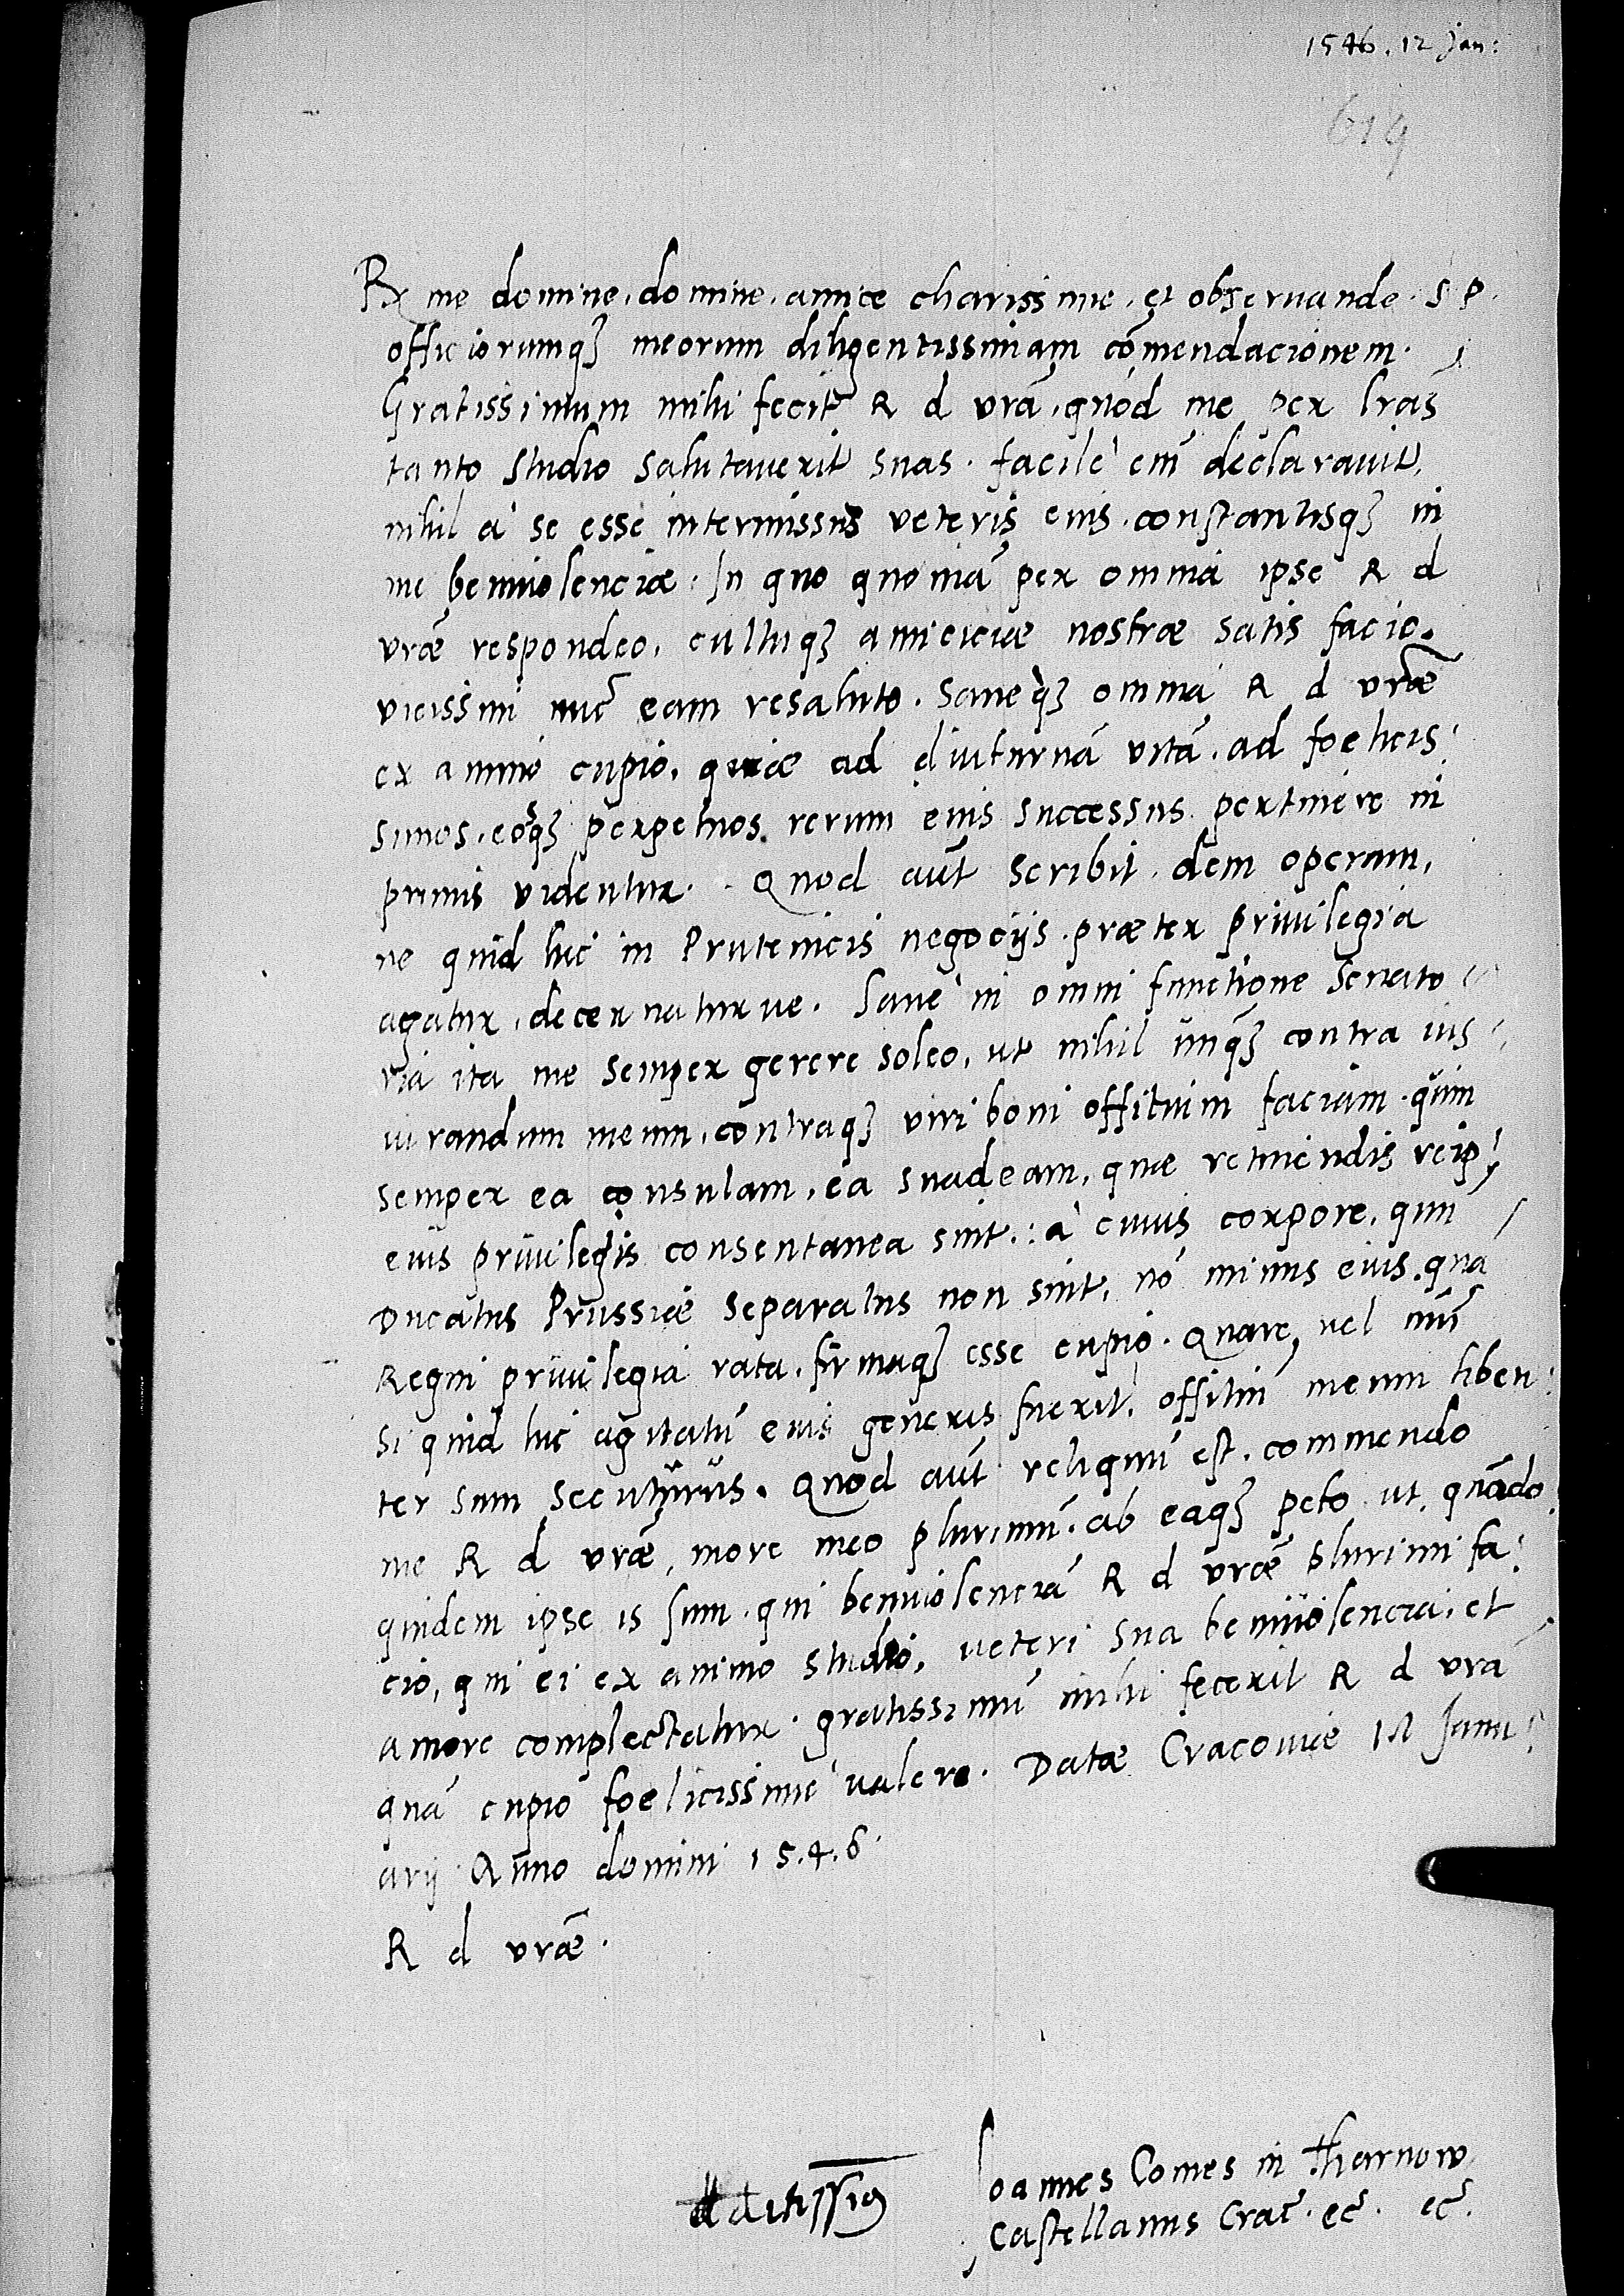 1546. 12 Jan:
619
Rx me domine, domine, amice charissime, et observande. S P.
officiorumq₃ meorum diligentissimam cōmendacionem.
Gratissimum mihi fecit R d vrā, quod me per lrās
tanto studio salutaverit suas. facilè em̄ declaravit,
nihil à se esse intermissus veteris eius, constantisq₃ in
me benivolenciæ. In quo quoniā per omnia ipse R d
vræ respondeo, cultuiq₃ amiciciæ nostræ satis facio.
vicissim nūc eam resaluto. Saneq₃ omnia R d vræ
ex animo cupio, quæ ad diuturnā vitā, ad foelicis:
simos, eosq₃ perpetuos rerum eius successus pertinere in
primis videntur. Quod aūt scribit, dem operam,
ne quid hic in Prutenicis negociis, præter privilegia
agatur, decernaturve. Sanè in omni functione senato
ria ita me semper gerere soleo, ut nihil unq₃ contra ius
iurandum meum, contraq₃ viri boni offitium faciam. quin
semper ea consulam, ea suadeam, quæ retinendis reip:
eius privilegiis consentanea sint: à cuius corpore, quum
Ducatus Prussiæ separatus non sint, nō minus eius, quā
Regni privilegia rata, firmaq₃ esse cupio. Quare, vel nūc
si quid hic agitatū eius generis fuerit, offitiū meum liben:
ter sum secuturus. Quod aūt reliquū est, commendo
me R d vræ, more meo plurimū. ab eaq₃ peto, ut, quādo:
quidem ipse is sum, qui benivolenciā R d vræ plurimi fa:
cio, qui ei ex animo studeo, veteri sua benivolencia, et
amore complectatur. gratissimū mihi fecerit R d vrā
quā cupio foelicissimè valere. Datæ Cracoviæ 12 Janu:
arij Anno domini 1546.
R d vræ.
deditissīg
Joannes Comes in Tharnow
Castellanus Crac̄. ec̄. ec̄.